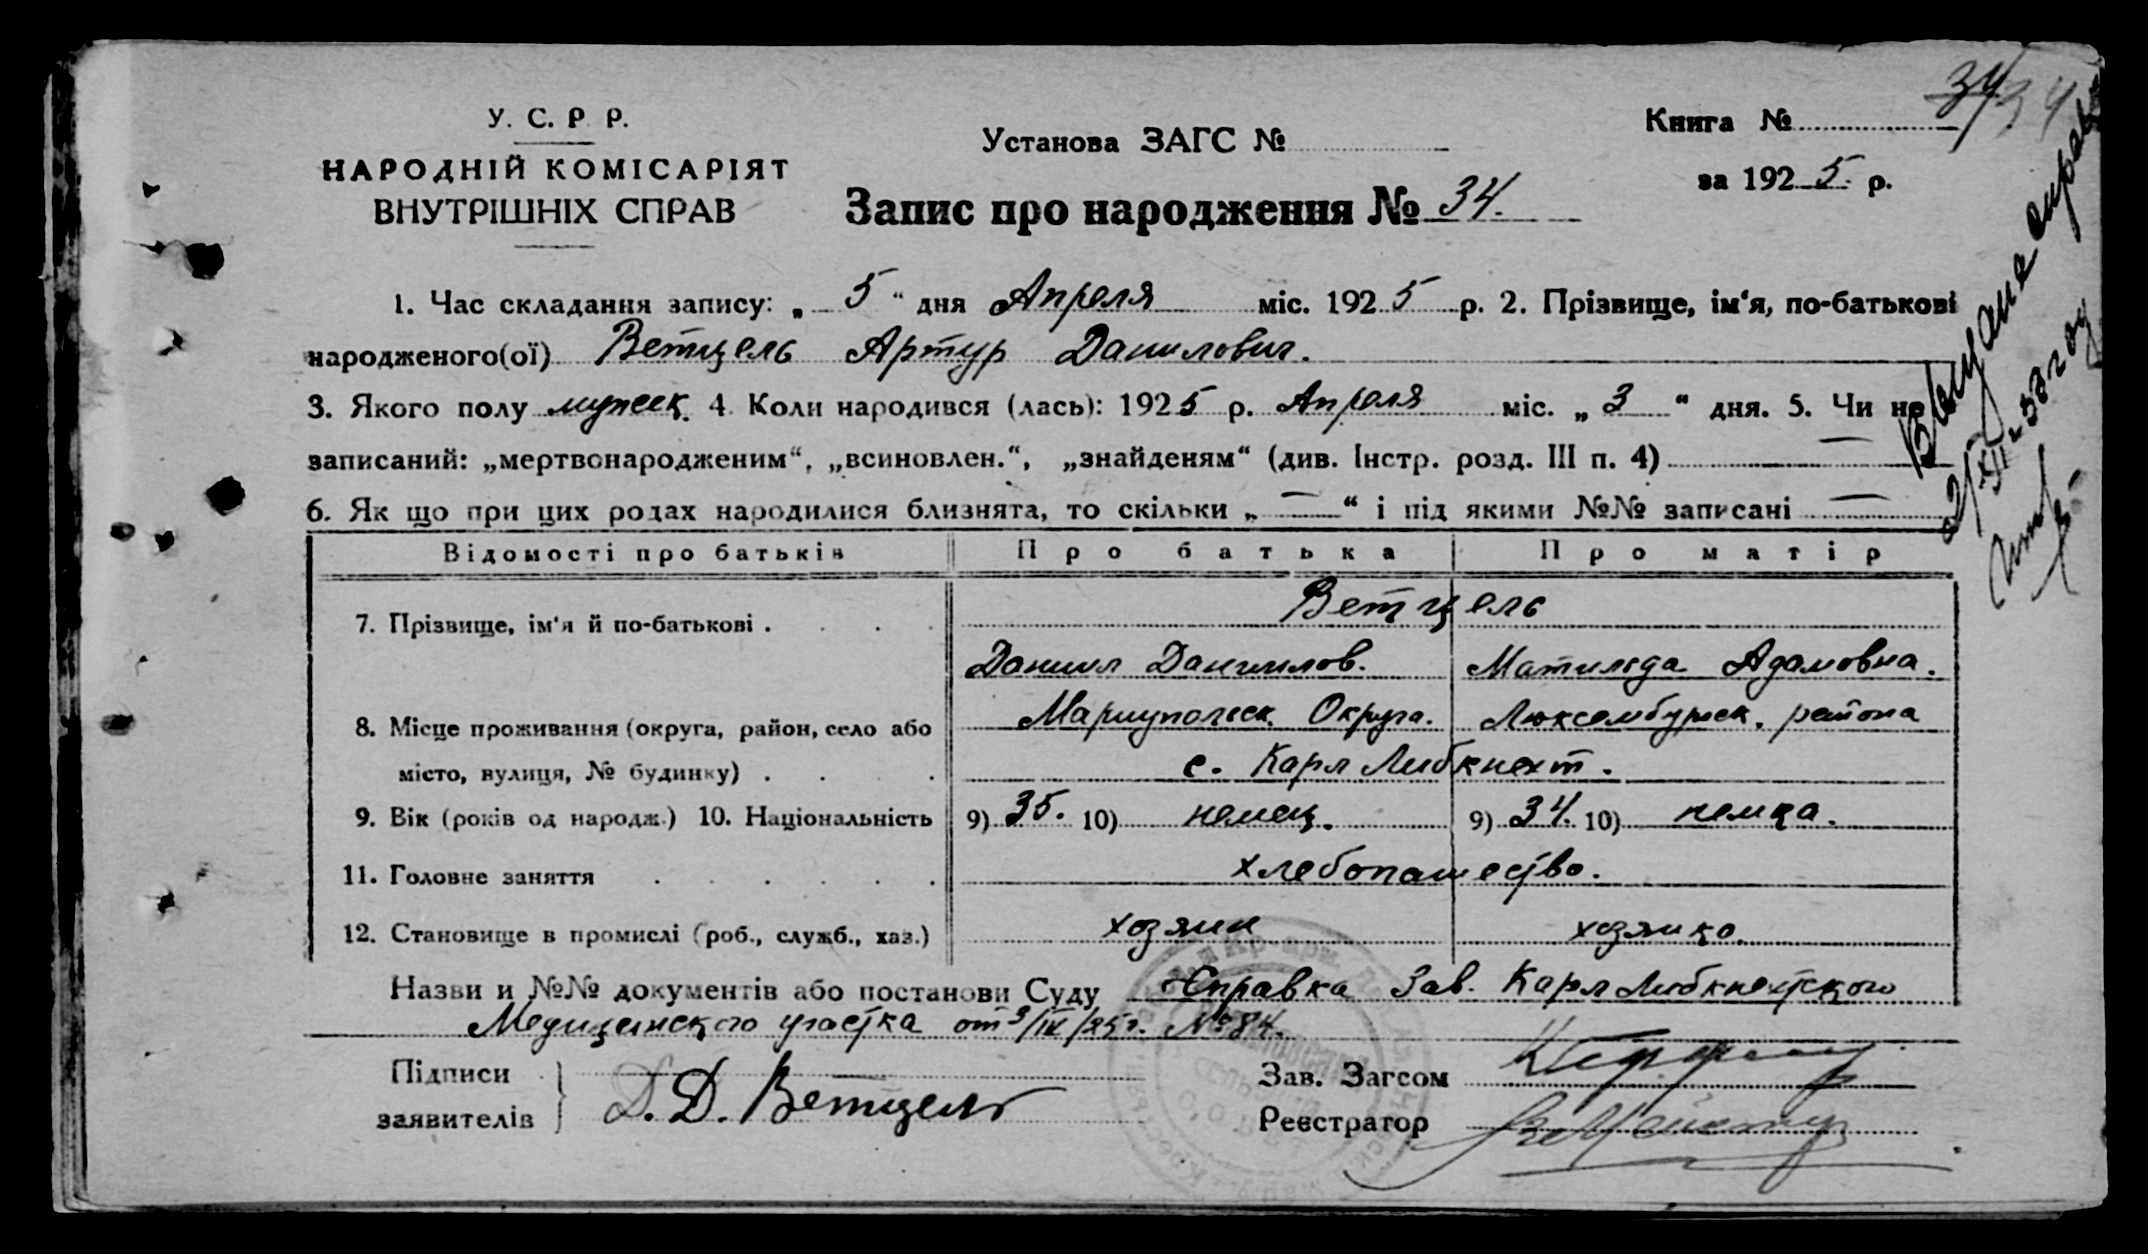 34 34
У. С. Р. Р.
НАРОДНІЙ КОМІСАРІЯТ
ВНУТРІШНІХ СПРАВ
Установа ЗАГС №
Книга №
за 1925 р.
Запис про народження № 34.
1. Час складання запису: „5“ дня Апреля міс. 1925 р. 2. Прізвище, ім‘я, по-батькові
народженого(ої) Ветцель Артур Данилович.
3. Якого полу мужеск. 4. Коли народився (лась): 1925 р. Апреля міс. „3“ дня. 5. Чи не
записаний: „мертвонародженим“, „всиновлен.“, „знайденям“ (див. Інстр. розд. III п. 4) —
6. Як що при цих родах народилися близнята, то скільки „—“ і під якими №№ записані —
Відомості про батьків Про батька Про матір
7. Прізвище, ім‘я й по-батькові . . . . Ветцель
Даниил Даниилов. Матильда Адамовна.
8. Місце проживання (округа, район, село або Мариупольск. Округа. Люксембургск. района
місто, вулиця, № будинку) . . . . с. Карл Либкнехт.
9. Вік (років од народж.) 10. Національність 9) 35. 10) немец. 9) 34. 10) немка.
11. Головне заняття . . . . . . хлебопашество.
12. Становище в промислі (роб., служб., хаз.) хозяин хозяйка.
Назви и №№ документів або постанови Суду Справка Зав. Карл Либкнехтского
Медицинского участка от 3/IV/25г. № 84.
Підписи
заявителів } Д. Д. Ветцель
Зав. Загсом
Реєстратор